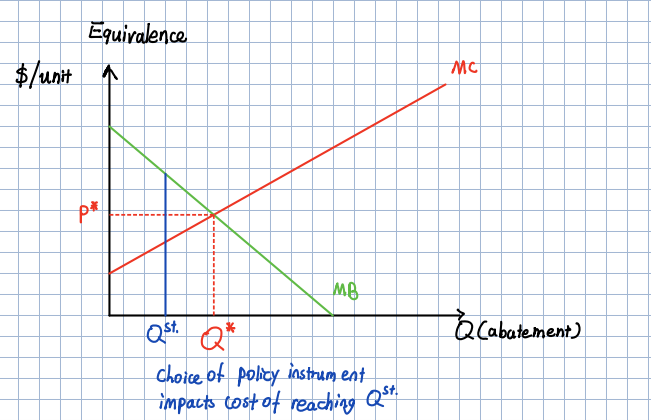 Equivalence
$/unit
MC
P*
MB
Qst.
Q*
Q(abatement)
choice of policy instrument
impacts cost of reaching Qst.